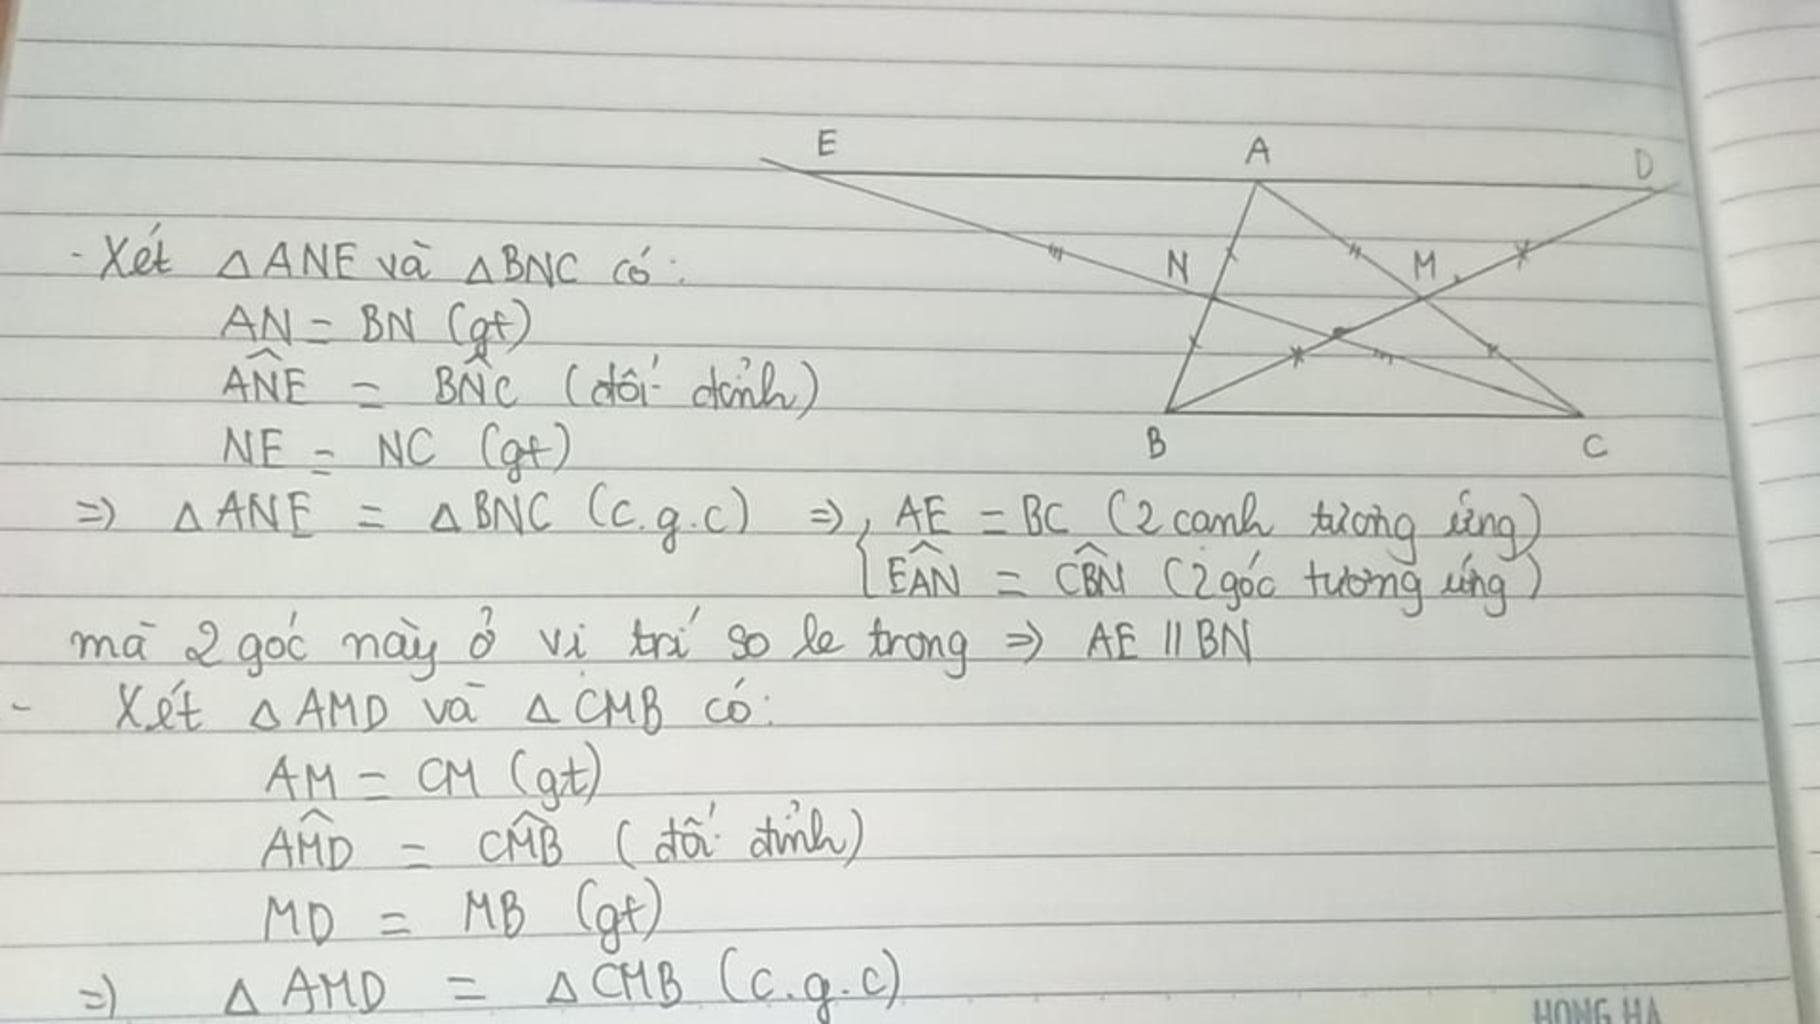 E A D
N M
B C
- Xét △ANE và △BNC có:
AN = BN (gt)
AN̂E = BN̂C (đối đỉnh)
NE = NC (gt)
=> △ANE = △BNC (c.g.c) => { AE = BC (2 cạnh tương ứng)
EÂN = CB̂N (2 góc tương ứng)
mà 2 góc này ở vị trí so le trong => AE // BN
- Xét △AMD và △CMB có:
AM = CM (gt)
AM̂D = CM̂B (đối đỉnh)
MD = MB (gt)
=> △AMD = △CMB (c.g.c)
HONG HA